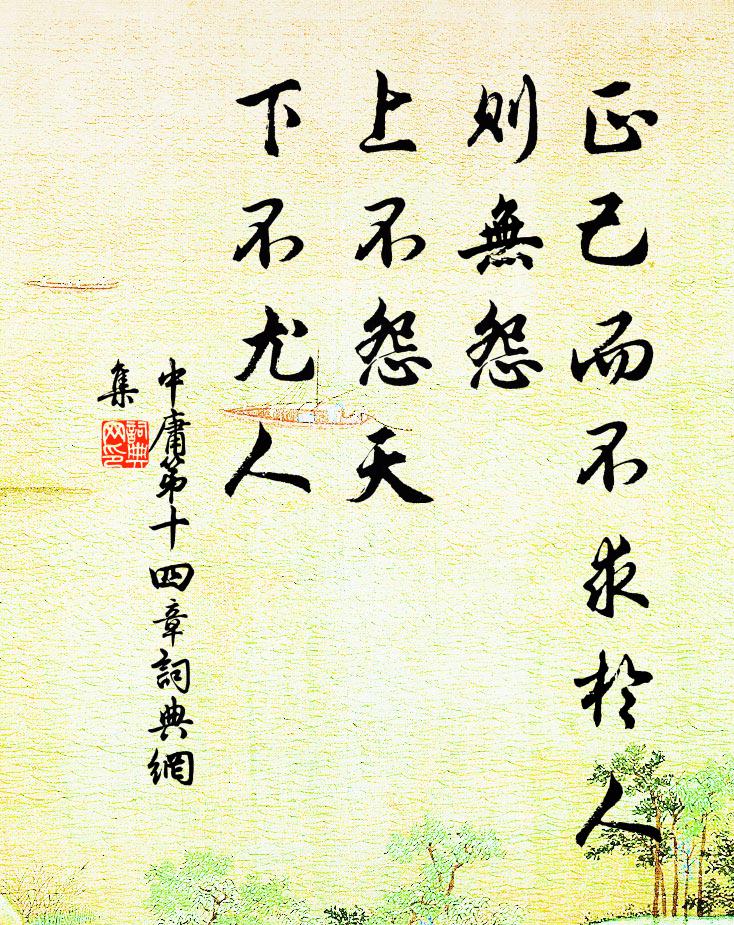 正己而不求於人
則無怨
上不怨天
下不尤人
中庸第十四章詞典網
集
詞典
网印